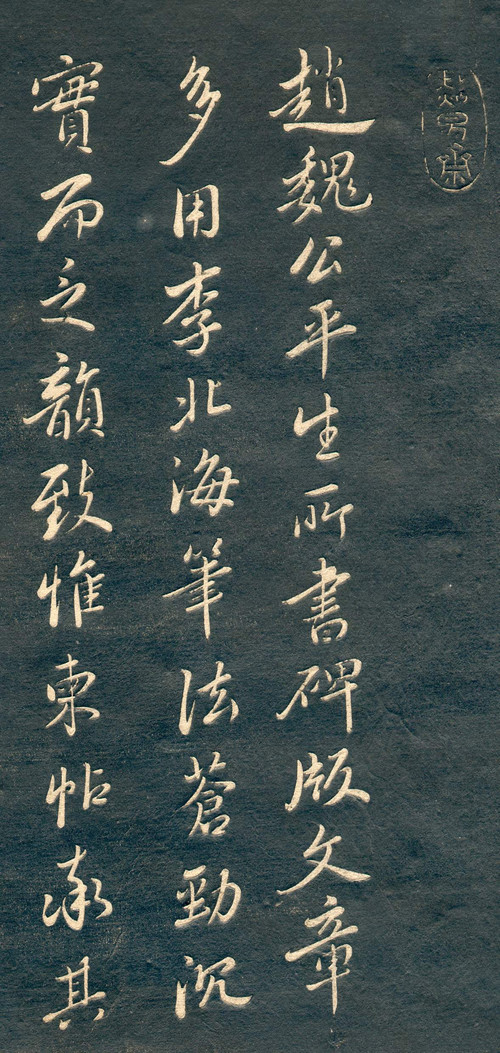 趙魏公平生所書碑版文章
多用李北海筆法蒼勁沉
實而乏韻致惟柬帖其